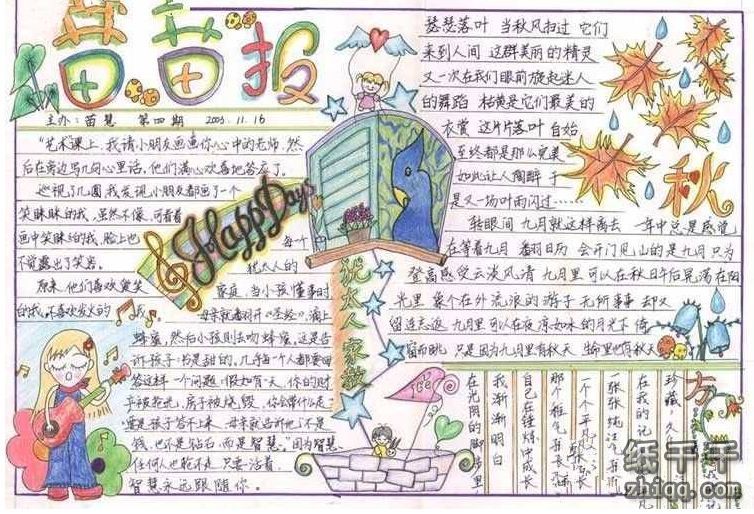 苗苗报
主办:苗慧 第四期 2003.11.16
"艺术课上,我请小朋友画画你心中的老师,然
后在旁边写几句心里话,他们满心欢喜地答应了。
巡视了几圈,我发现小朋友都画了一个
笑眯眯的我,虽然不像,可看着
画中笑眯眯的我,脸上也
不觉露出了笑容。
原来,他们喜欢爱笑
的我,不喜欢发火的我。
Happy Days
犹太人家教
每个
犹太人的
家庭,当小孩懂事时
母亲就翻开《圣经》,滴上
蜂蜜,然后小孩则去吻蜂蜜,这是告
诉孩子:书是甜的,几乎每一个人都要回
答这样一个问题:假如有一天,你的财
产被抢光,房子被烧毁,你会带什么走?
要是孩子答不上来,母亲就告诉他"不是
钱,也不是钻石,而是智慧。"因为智慧
任何人也抢不走,只要活着,
智慧永远跟随你。
瑟瑟落叶 当秋风扫过 它们
来到人间 这群美丽的精灵
又一次在我们眼前旋起迷人
的舞蹈 枯黄是它们最美的
衣赏 这片片落叶 自始
至终都是那么完美
如此让人陶醉 于
是又一场叶雨闪过……
秋
转眼间 九月就这样离去 一年中总是感觉
在等着九月 翻日历 会开门见山的是九月 只为
登高感受云淡风清 九月里 可以在秋日午后晃荡在阳
光里 象个在外流浪的游子 无所事事 却又
留连忘返 九月里 可以在夜凉如水的月光下 倚
窗而眺 只是因为九月里有秋天 生命里也有秋天
珍藏,久久
在我的记
一张张纯洁
一个个平凡
那个稚气
自己在锤炼中成长
我渐渐明白
在光阴的脚步里
纸千千
zhiqq.com